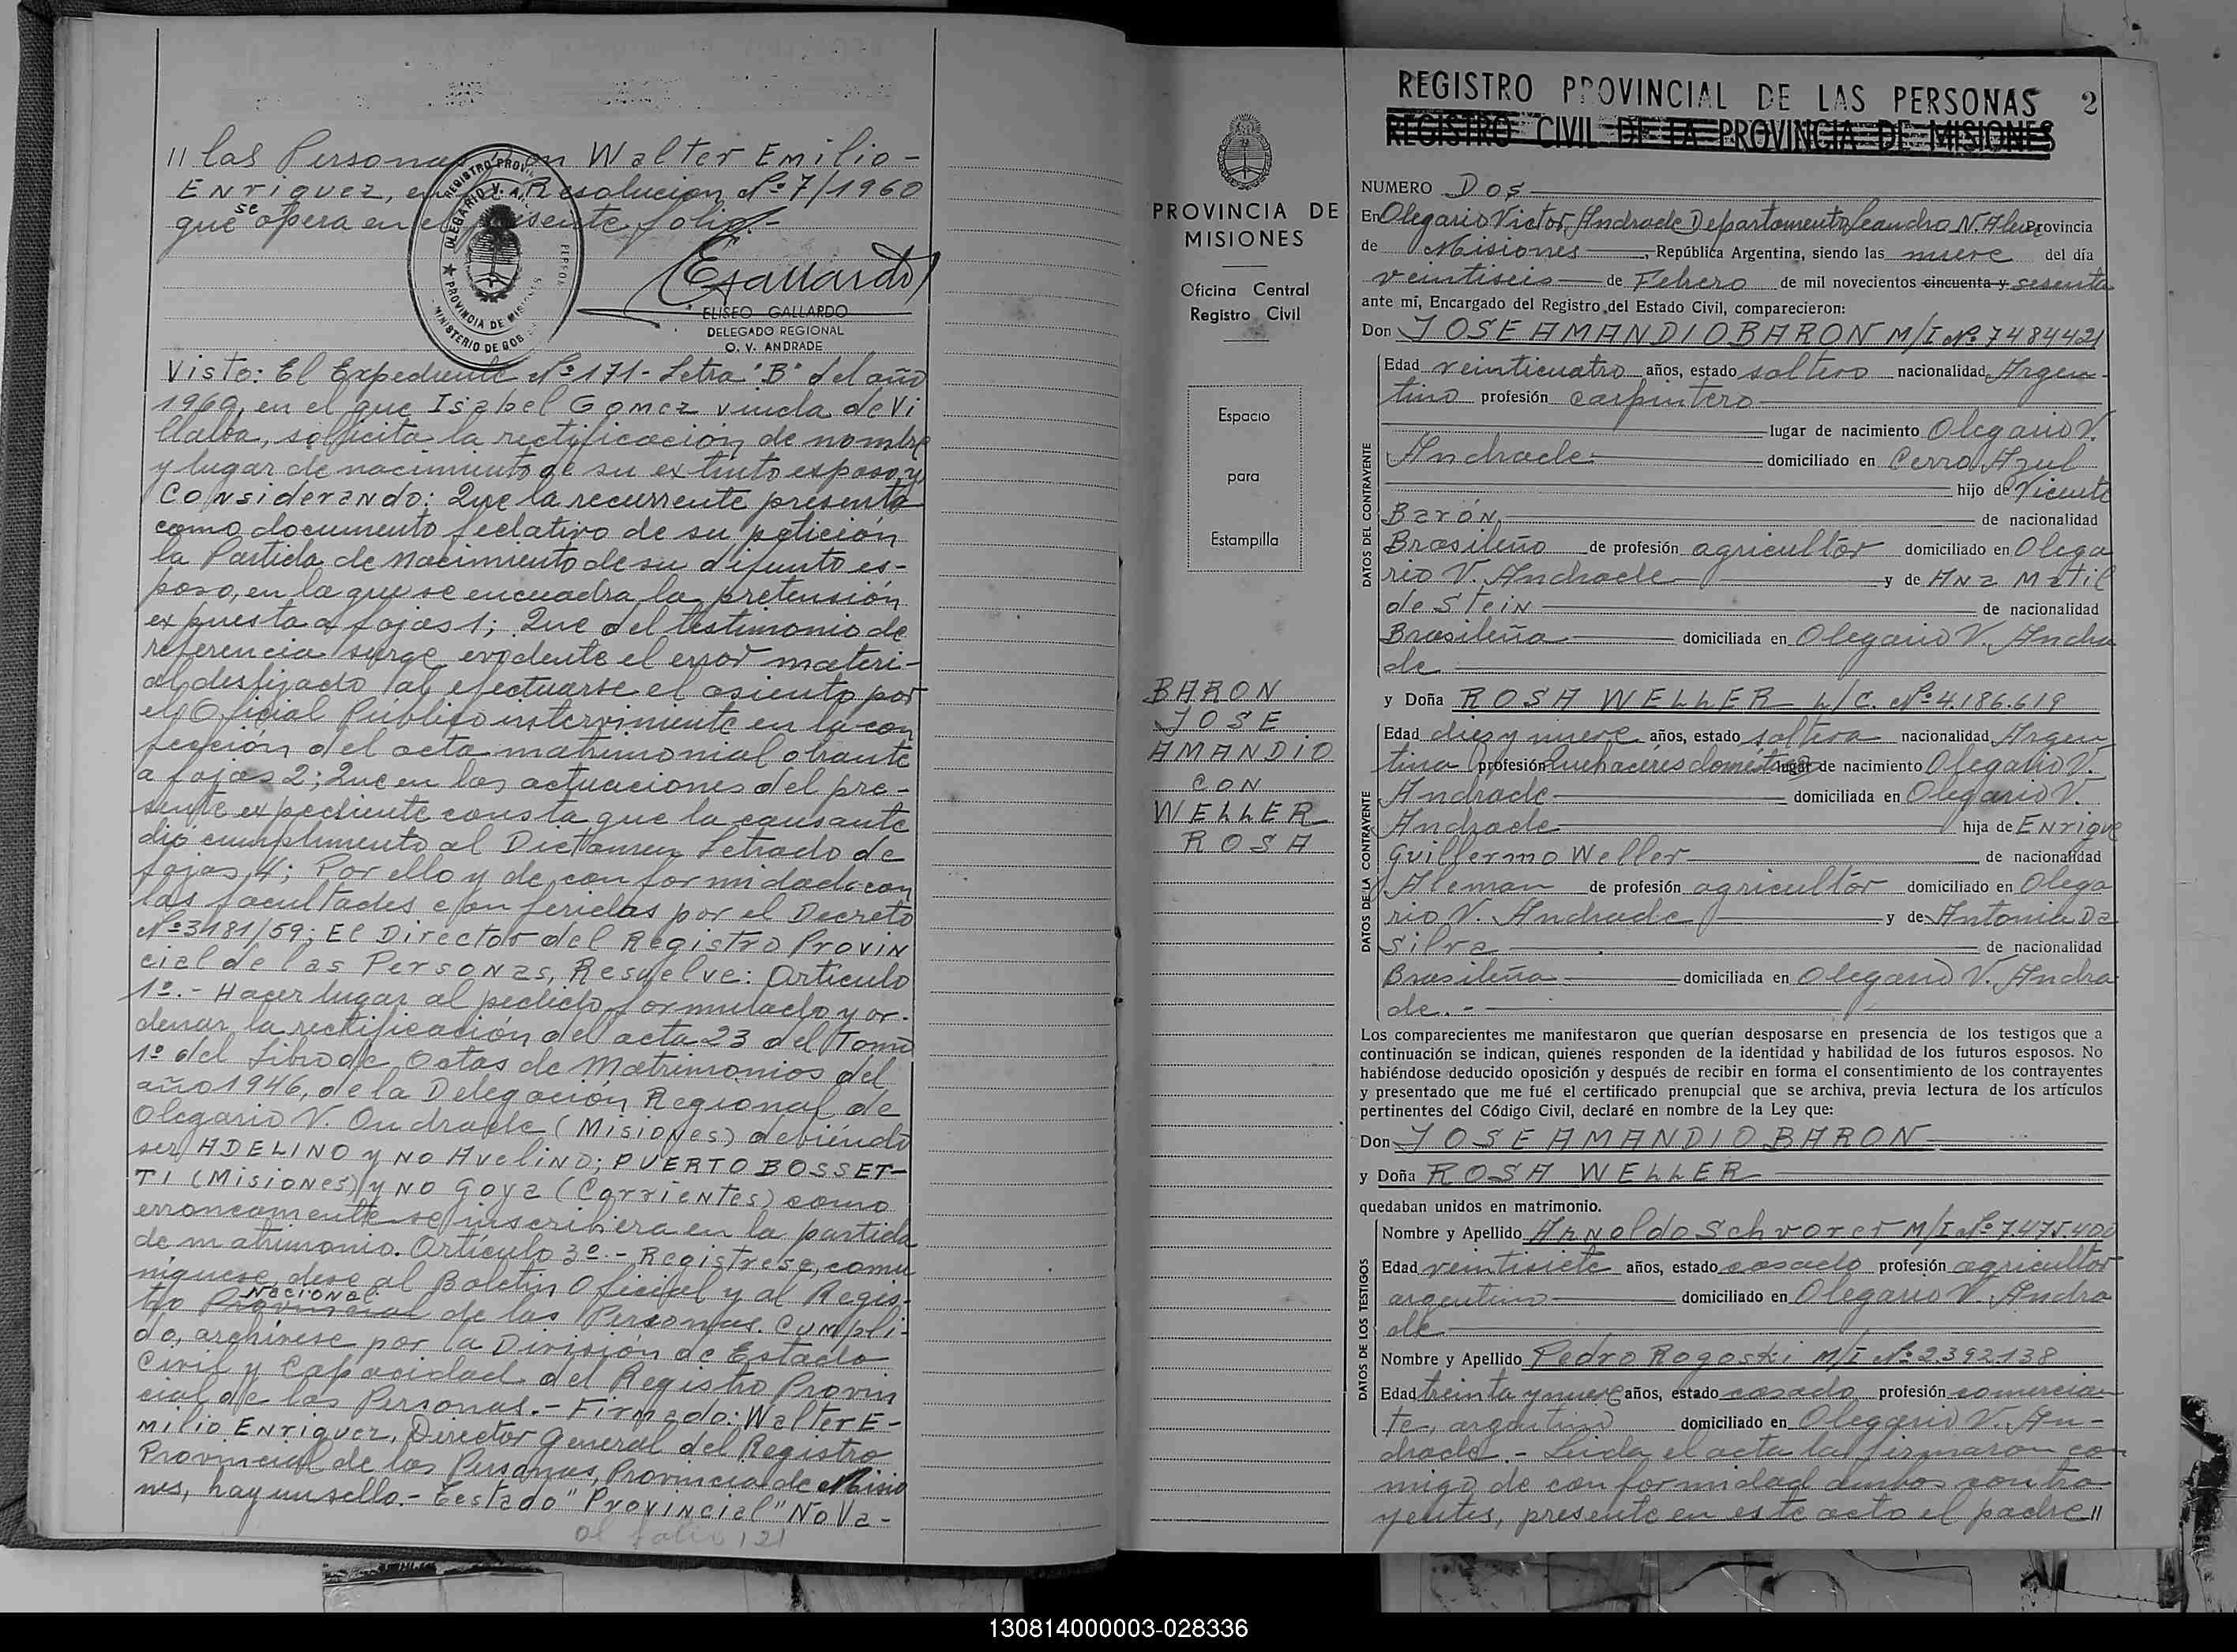 // las Personas don Walter Emilio -
Enriquez, en Resolucion Nº 7/1960
que se opera en el presente folio.-
REGISTRO PROV
OLEGARIO V. A.
PERSON
PROVINCIA DE MISIONES
MINISTERIO DE GOB.
EGallardo
ELISEO GALLARDO
DELEGADO REGIONAL
O. V. ANDRADE
Visto: El Expediente Nº 171- Letra "B" del año
1960, en el que Isabel Gomez viuda de Vi
llalba, solicita la rectificación de nombre
y lugar de nacimiento de su extinto esposo, y
Considerando: Que la recurrente presenta
como documento fedativo de su petición
la Partida de Nacimiento de su difunto es-
poso, en la que se encuadra la pretensión
expuesta a fojas 1; Que del testimonio de
referencia surge evidente el error materi-
al deslizado al efectuarse el asiento por
el Oficial Público interviniente en la con
fección del acta matrimonial obrante
a fojas 2; Que en las actuaciones del pre-
sente expediente consta que la causante
dió cumplimento al Dictamen Letrado de
fojas 4; Por ello y de conformidad con
las facultades conferidas por el Decreto
Nº 3181/59; El Director del Registro Provin
cial de las Personas, Resuelve: Artículo
1º.- Hacer lugar al pedido formulado y or-
denar la rectificación del acta 23 del Tomo
1º del Libro de Actas de Matrimonios del
año 1946, de la Delegación Regional de
Olegario V. Andrade (Misiones) debiendo
ser ADELINO y NO Avelino; PUERTO BOSSET-
TI (Misiones) y NO Goya (Corrientes) como
erroneamente se inscribiera en la partida
de matrimonio. Artículo 3º.- Registrese, comu
niquese, dese al Boletin Oficial y al Regis-
Nacional
tro Provincial de las Personas. Cumpli-
do, archivese por la División de Estado
Civil y Capacidad del Registro Provin
cial de las Personas.- Firmado: Walter E-
milio Enriquez, Director General del Registro
Provincial de las Personas, Provincia de Misio
nes, hay un sello.- Testado "Provincial" No Va-
al folio 121
PROVINCIA DE
MISIONES
Oficina Central
Registro Civil
Espacio
para
Estampilla
BARON
JOSE
AMANDIO
CON
WELLER
ROSA
REGISTRO PROVINCIAL DE LAS PERSONAS 2
REGISTRO CIVIL DE LA PROVINCIA DE MISIONES
NUMERO Dos
En Olegario Victor Andrade Departamento Leandro N. Alem Provincia
de Misiones, República Argentina, siendo las nueve del día
veintiseis de Febrero de mil novecientos cincuenta y sesenta
ante mí, Encargado del Registro del Estado Civil, comparecieron:
Don JOSE AMANDIO BARON M/I Nº 7484421
DATOS DEL CONTRAYENTE
Edad veinticuatro años, estado soltero nacionalidad Argen-
tino profesión carpintero
lugar de nacimiento Olegario V.
Andrade domiciliado en Cerro Azul
hijo de Vicente
Barón de nacionalidad
Brasileño de profesión agricultor domiciliado en Olega
rio V. Andrade y de Ana Matil
de Stein de nacionalidad
Brasileña domiciliada en Olegario V. Andra
de
y Doña ROSA WELLER L/C. Nº 4.186.619
DATOS DE LA CONTRAYENTE
Edad diez y nueve años, estado soltera nacionalidad Argen
tina profesión Quehaceres domésticos lugar de nacimiento Olegario V.
Andrade domiciliada en Olegario V.
Andrade hija de Enrique
Guillermo Weller de nacionalidad
Aleman de profesión agricultor domiciliado en Olega
rio V. Andrade y de Antonia Da
Silva de nacionalidad
Brasileña domiciliada en Olegario V. Andra
de.-
Los comparecientes me manifestaron que querían desposarse en presencia de los testigos que a
continuación se indican, quienes responden de la identidad y habilidad de los futuros esposos. No
habiéndose deducido oposición y después de recibir en forma el consentimiento de los contrayentes
y presentado que me fué el certificado prenupcial que se archiva, previa lectura de los artículos
pertinentes del Código Civil, declaré en nombre de la Ley que:
Don JOSE AMANDIO BARON
y Doña ROSA WELLER
quedaban unidos en matrimonio.
DATOS DE LOS TESTIGOS
Nombre y Apellido Arnoldo Schvorer M/I Nº 7.475.400
Edad veintisiete años, estado casado profesión agricultor
argentino domiciliado en Olegario V. Andra
de
Nombre y Apellido Pedro Rogoski M/I Nº 2392138
Edad treinta y nueve años, estado casado profesión comercian
te, argentino domiciliado en Olegario V. An-
drade.- Leida el acta la firmaron con
migo de conformidad ambos contra
yentes, presente en este acto el padre //
130814000003-028336